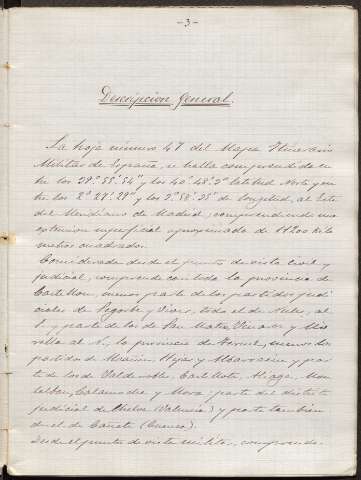 -3-
Descripcion General.
La hoja número 47 del Mapa Itinerario
Militar de España, se halla comprendida en-
tre los 39°.55'.54" y los 40°.48'.2" latitud Norte y en
tre los 2°.27'.28" y los de longitud, al Este
del Meridiano de Madrid, comprendiendo una
extension superficial aproximada de 11200 kiló
metros cuadrados.
Considerada desde el punto de vista civil y
judicial, comprende con toda la provincia de
Castellon, menos parte de los partidos judi
ciales de Segorbe y Viver, todo el de Nules, al
S. y parte de los de San Mateo, Vinaroz y Mo
rella al N., la provincia de Teruel, menos los
partidos de Hijar y Albarracin y par-
te de los de Valderrobles, Castellote, Aliaga, Mon
talban, Calamocha y Mora; parte del distrito
judicial de Chelva (Valencia) y parte tambien
del de Cañete (Cuenca).
Desde el punto de vista militar, comprende